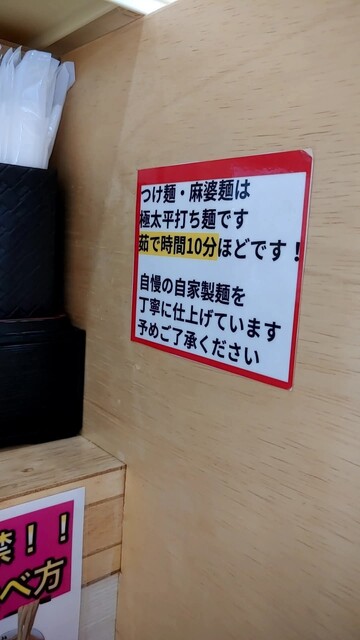 つけ麺・麻婆麺は
極太平打ち麺です
茹で時間10分ほどです！
自慢の自家製麺を
丁寧に仕上げています
予めご了承ください
禁！！
べ方